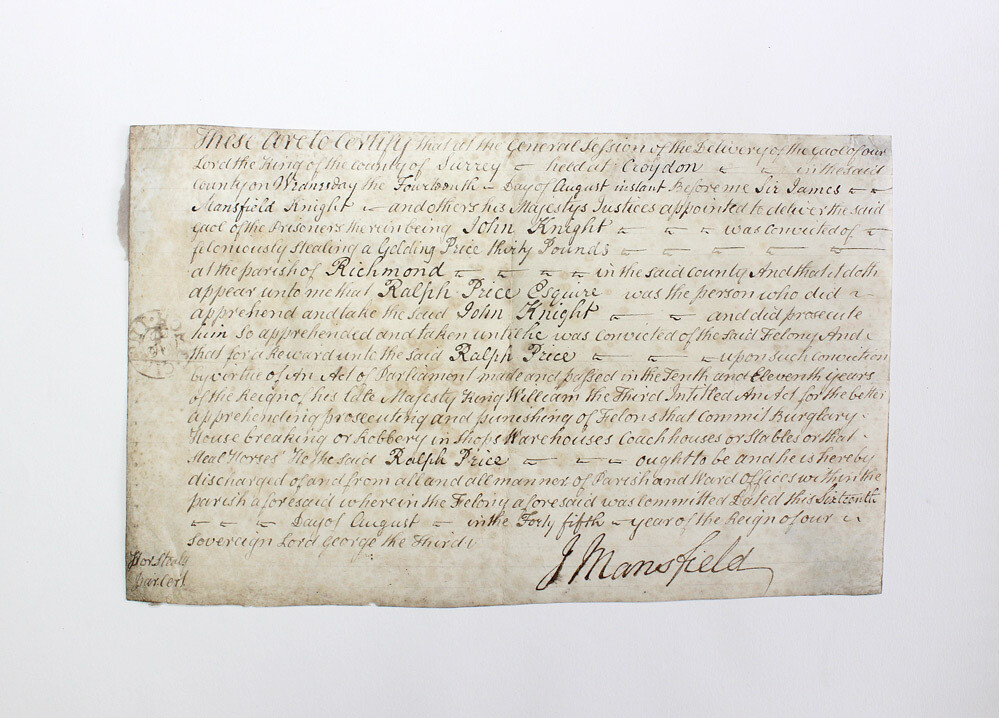 These are to Certify that at the General Session of the Delivery of the Gaol of our
Lord the King of the County of Surrey held at Croydon in the said
County on Wednesday the Fourteenth Day of August instant Before me Sir James
Mansfield Knight and others his Majestys Justices appointed to deliver the said
Gaol of the Prisoners therein being John Knight was Convicted of
feloniously stealing a Gelding Price thirty Pounds
at the parish of Richmond in the said County And that it doth
appear unto me that Ralph Price Esquire was the person who did
apprehend and take the said John Knight and did prosecute
him so apprehended and taken until he was Convicted of the said Felony And
that for a Reward unto the said Ralph Price upon such Conviction
by virtue of An Act of Parliament made and passed in the Tenth and Eleventh years
of the Reign of his late Majesty King William the Third Intitled An Act for the better
apprehending prosecuting and punishing of Felons that Commit Burglary
House breaking or Robbery in Shops Warehouses Coachhouses or Stables or that
steal Horses He the said Ralph Price ought to be and he is hereby
discharged of and from all and all manner of Parish and Ward Offices within the
parish aforesaid wherein the Felony aforesaid was Committed Dated this Sixteenth
Day of August in the Forty fifth year of the Reign of our
Sovereign Lord George the Third
J Mansfield